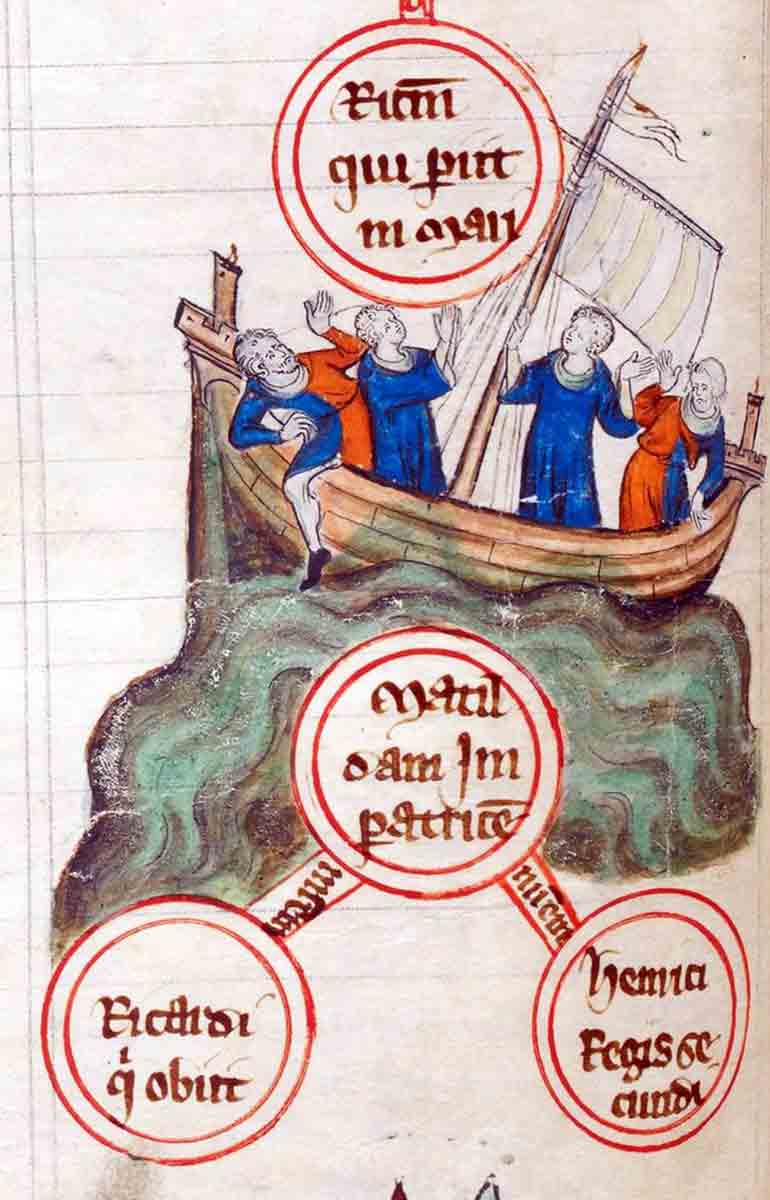 Ricm̄
qui ꝑiit
in mari
Matil
dam Im
patricē
Ricardi
qⁱ obiit
henrici
Regis se
cundi